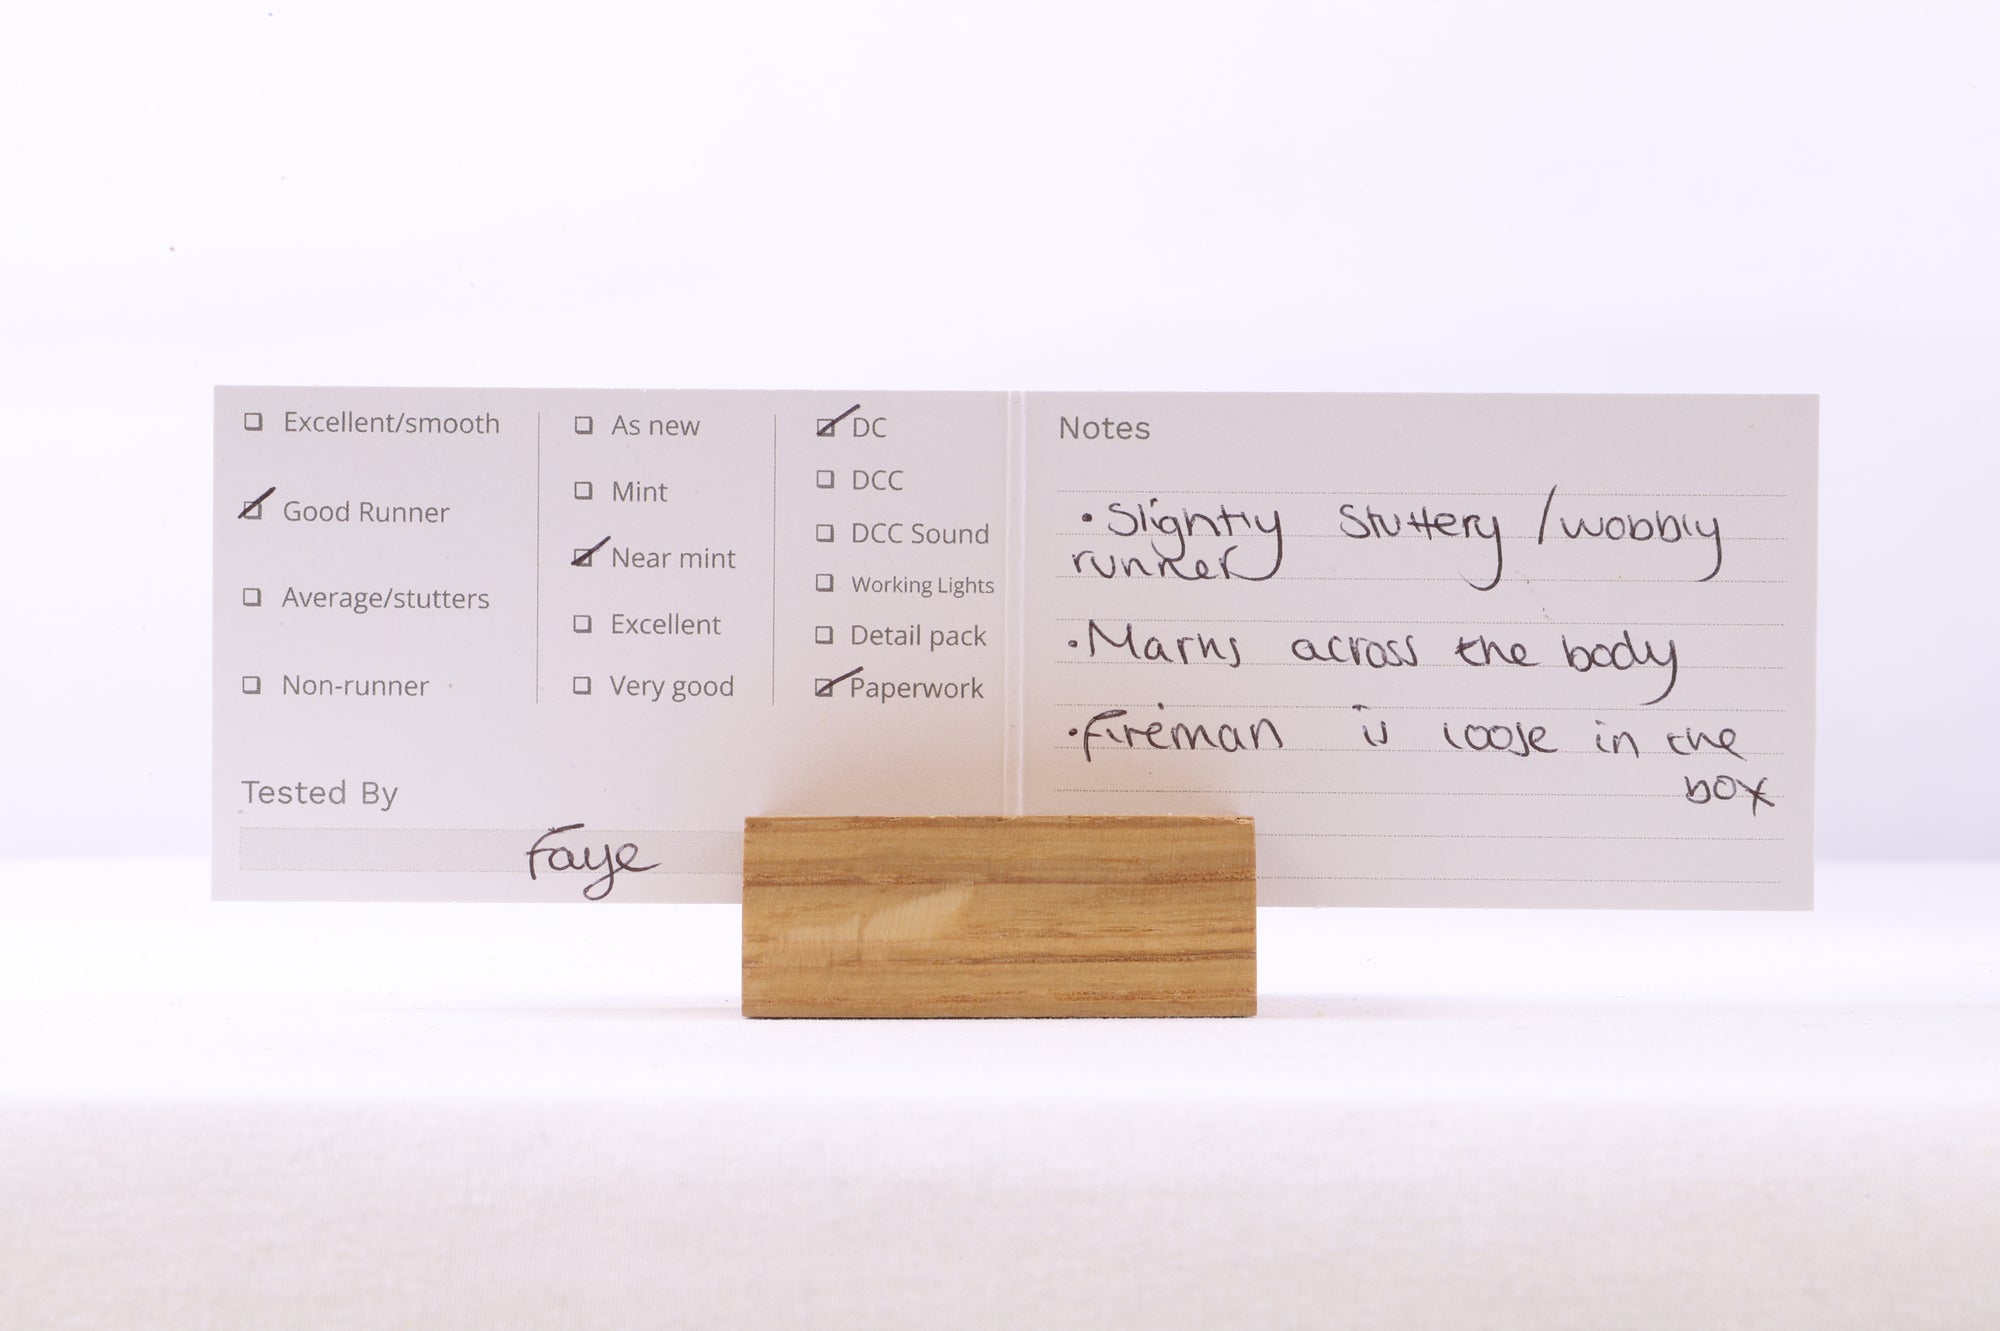 Excellent/smooth
Good Runner
Average/stutters
Non-runner
As new
Mint
Near mint
Excellent
Very good
DC
DCC
DCC Sound
Working Lights
Detail pack
Paperwork
Tested By
Faye
Notes
• Slightly stuttery / wobbly
runner
• Marks across the body
• fireman is loose in the
box